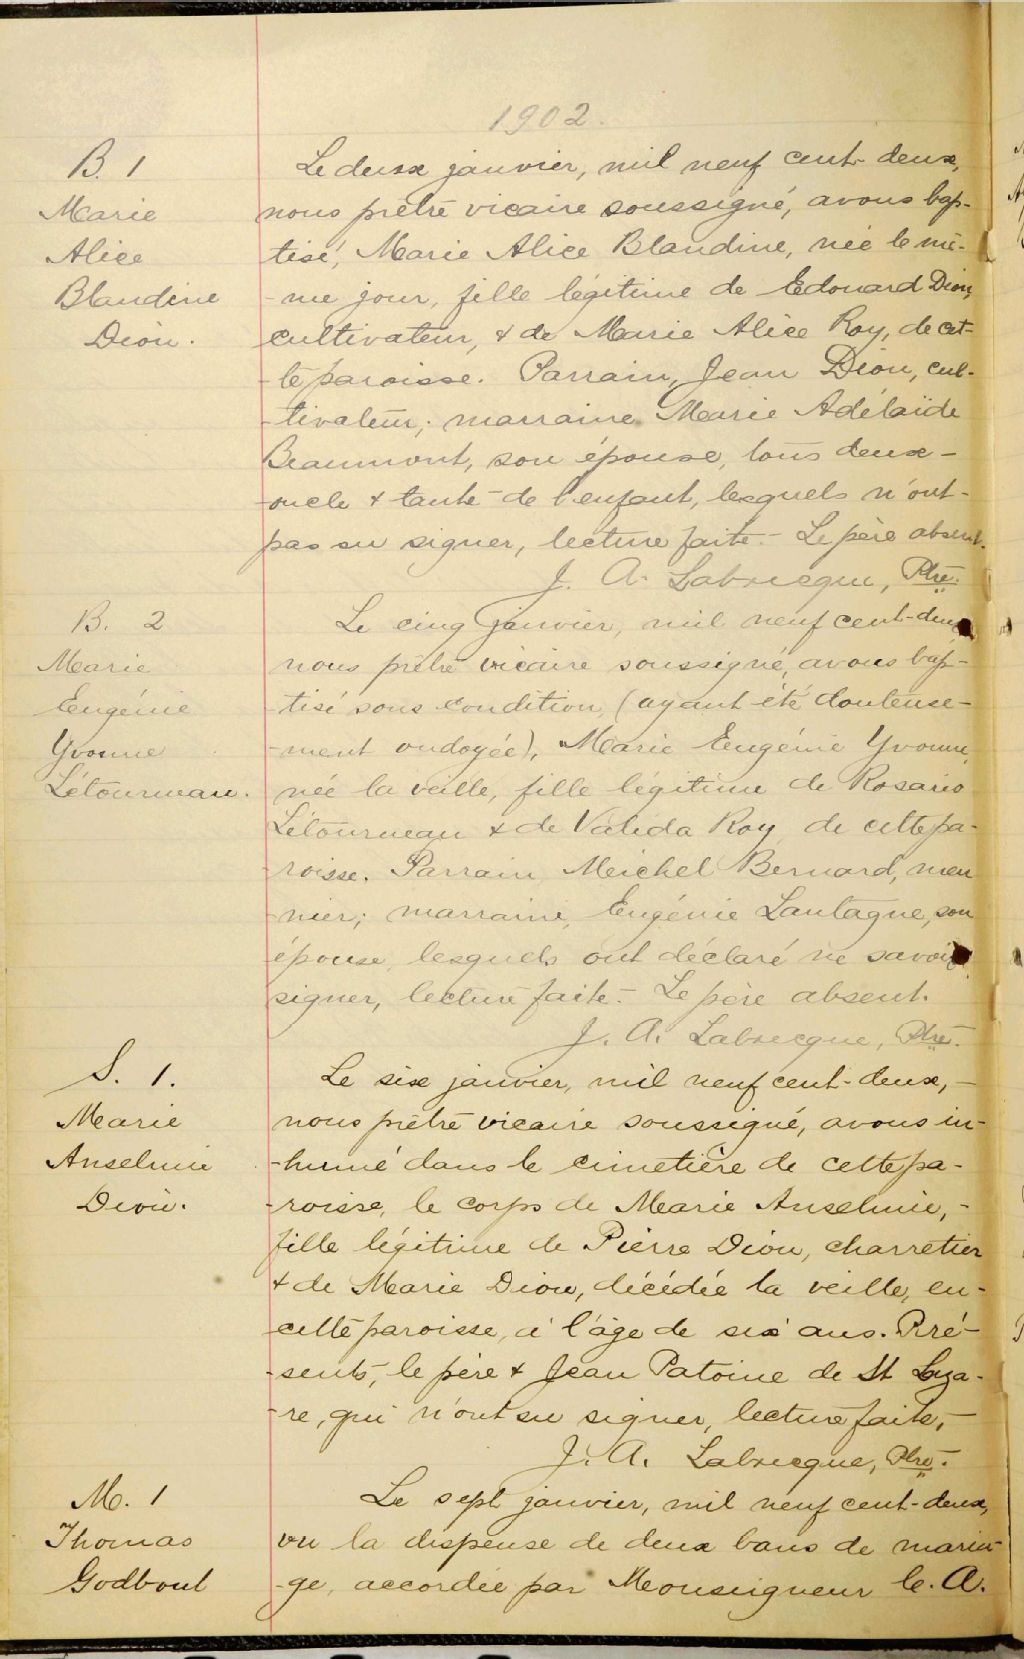 1902.
B. 1
Marie
Alice
Blandine
Dion.
Le deux janvier, mil neuf cent-deux,
nous prêtre vicaire soussigné, avons bap-
tisé, Marie Alice Blandine, née le mê-
-me jour, fille légitime de Edouard Dion,
cultivateur, & de Marie Alice Roy, de cet-
-te paroisse. Parrain, Jean Dion, cul-
-tivateur; marraine Marie Adélaïde
Beaumont, son épouse, tous deux-
-oncle & tante de l'enfant, lesquels n'ont-
pas su signer, lecture faite.- Le père absent.
J. A. Labrecque, Ptre.
B. 2
Marie
Eugénie
Yvonne
Létourneau.
Le cinq janvier, mil neuf cent-deux
nous prêtre vicaire soussigné, avons bap-
-tisé sous condition, (ayant été douteuse-
-ment ondoyée), Marie Eugénie Yvonne,
née la veille, fille légitime de Rosario
Létourneau & de Valida Roy de cette pa-
-roisse. Parrain Meichel Bernard, meu
-nier; marraine, Eugénie Lantagne, son
épouse, lesquels ont déclaré ne savoir
signer, lecture faite.- Le père absent.
J. A. Labrecque, Ptre.
S. 1.
Marie
Anselmie
Dion.
Le six janvier, mil neuf cent-deux,-
nous prêtre vicaire soussigné, avons in-
-humé dans le cimetière de cette pa-
-roisse, le corps de Marie Anselmie,-
fille légitime de Pierre Dion, charretier
& de Marie Dion, décédée la veille, en-
cette paroisse, à l'âge de six ans. Pré-
-sents, le père & Jean Patoine de St Laza-
-re, qui n'ont su signer, lecture faite,-
J. A. Labrecque, Ptre.
M. 1
Thomas
Godbout
Le sept janvier, mil neuf cent-deux,
vu la dispense de deux bans de maria-
-ge, accordée par Monseigneur C. A.